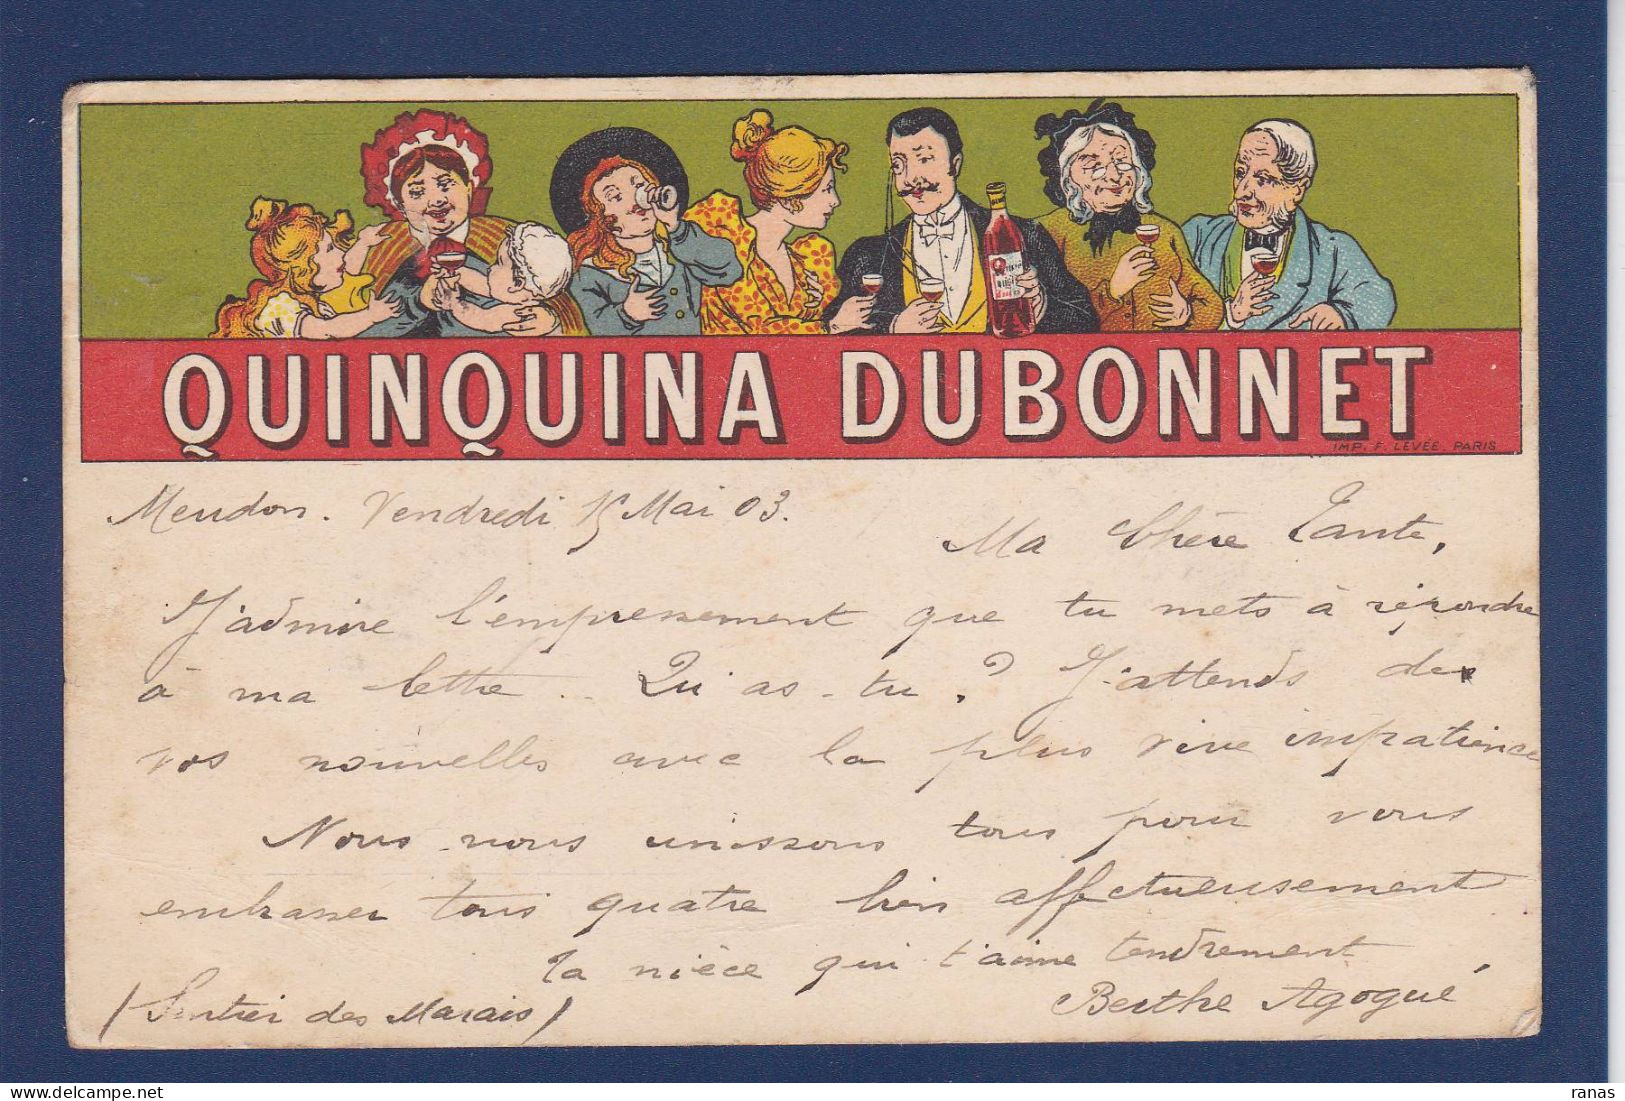 QUINQUINA DUBONNET
IMP. F. LEVÉE PARIS
Meudon. Vendredi 15 Mai 03.
Ma Chère Tante,
J'admire l'empressement que tu mets à répondre
à ma lettre.. Qu'as-tu? J'attends de
vos nouvelles avec la plus vive impatience
Nous nous unissons tous pour vous
embrasser tous quatre bien affectueusement
Ta nièce qui t'aime tendrement,
Berthe Agogué
(Sentier des Marais)
ranas